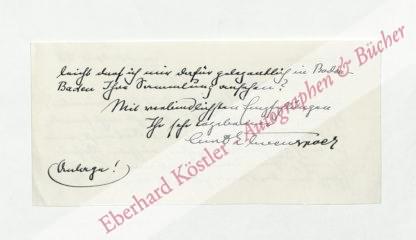 leicht darf ich mir dafür gelegentlich in Baden-
Baden Ihre Sammlung ansehen?
Mit verbindlichsten Empfehlungen
Ihr sehr ergebener
Curt Elwenspoek
Anlage!
Eberhard Köstler Autographen & Bücher